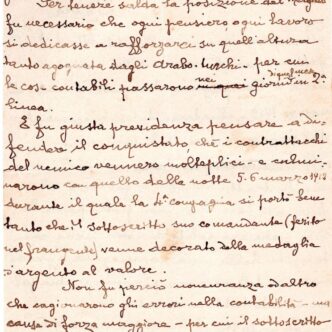 Per tenere salda la posizione del
fu necessario che ogni pensiero ogni lavoro
si dedicasse a rafforzarci su quell'altura
tanto agognata dagli Arabo-Turchi - per cui
le cose contabili passarono nei giorni di quel mese 2ª
linea.
E fu giusta previdenza pensare a di-
fendere il conquistato, chè i contrattacchi
del nemico vennero molteplici - e culmi-
narono con quello della notte 5-6 marzo 1912
durante il quale la 4ª compagnia si portò bene
tanto che il sottoscritto suo comandante (ferito
nel frangente) venne decorato della medaglia
d'argento al valore.
Non fu perciò noncuranza od altro
che cagionarono gli errori nella contabilità - ma
cause di forza maggiore - per cui il sottoscritto